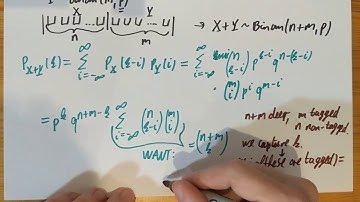 X Y
|U U U ... U|U U ... U| → X+Y ~ Binom(n+m, p)
n m
P_{X+Y}(k) = ∑_{i=-∞}^{∞} P_X(k-i) P_Y(i) = ∑_{i=-∞}^{∞} (n k-i) p^{k-i} q^{n-k+i}
· (m i) p^i q^{m-i}
= p^k q^{n+m-k} ∑_{i=-∞}^{∞} (n k-i)(m i)
WANT: = (n+m k)
n+m deer, m tagged
n non-tagged.
we capture k.
of these are tagged) =